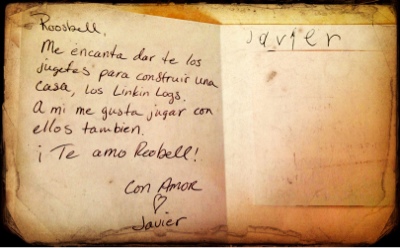 Roosbell,
Me encanta dar te los
jugetes para construir una
casa, los Linkin Logs.
A mi me gusta jugar con
ellos tambien.
¡Te amo Roobell!
Con Amor
♡
Javier
Javier